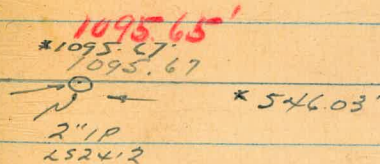 1095.65'
*1095.67'
1095.67
* 546.03'
2" IP
LS2412